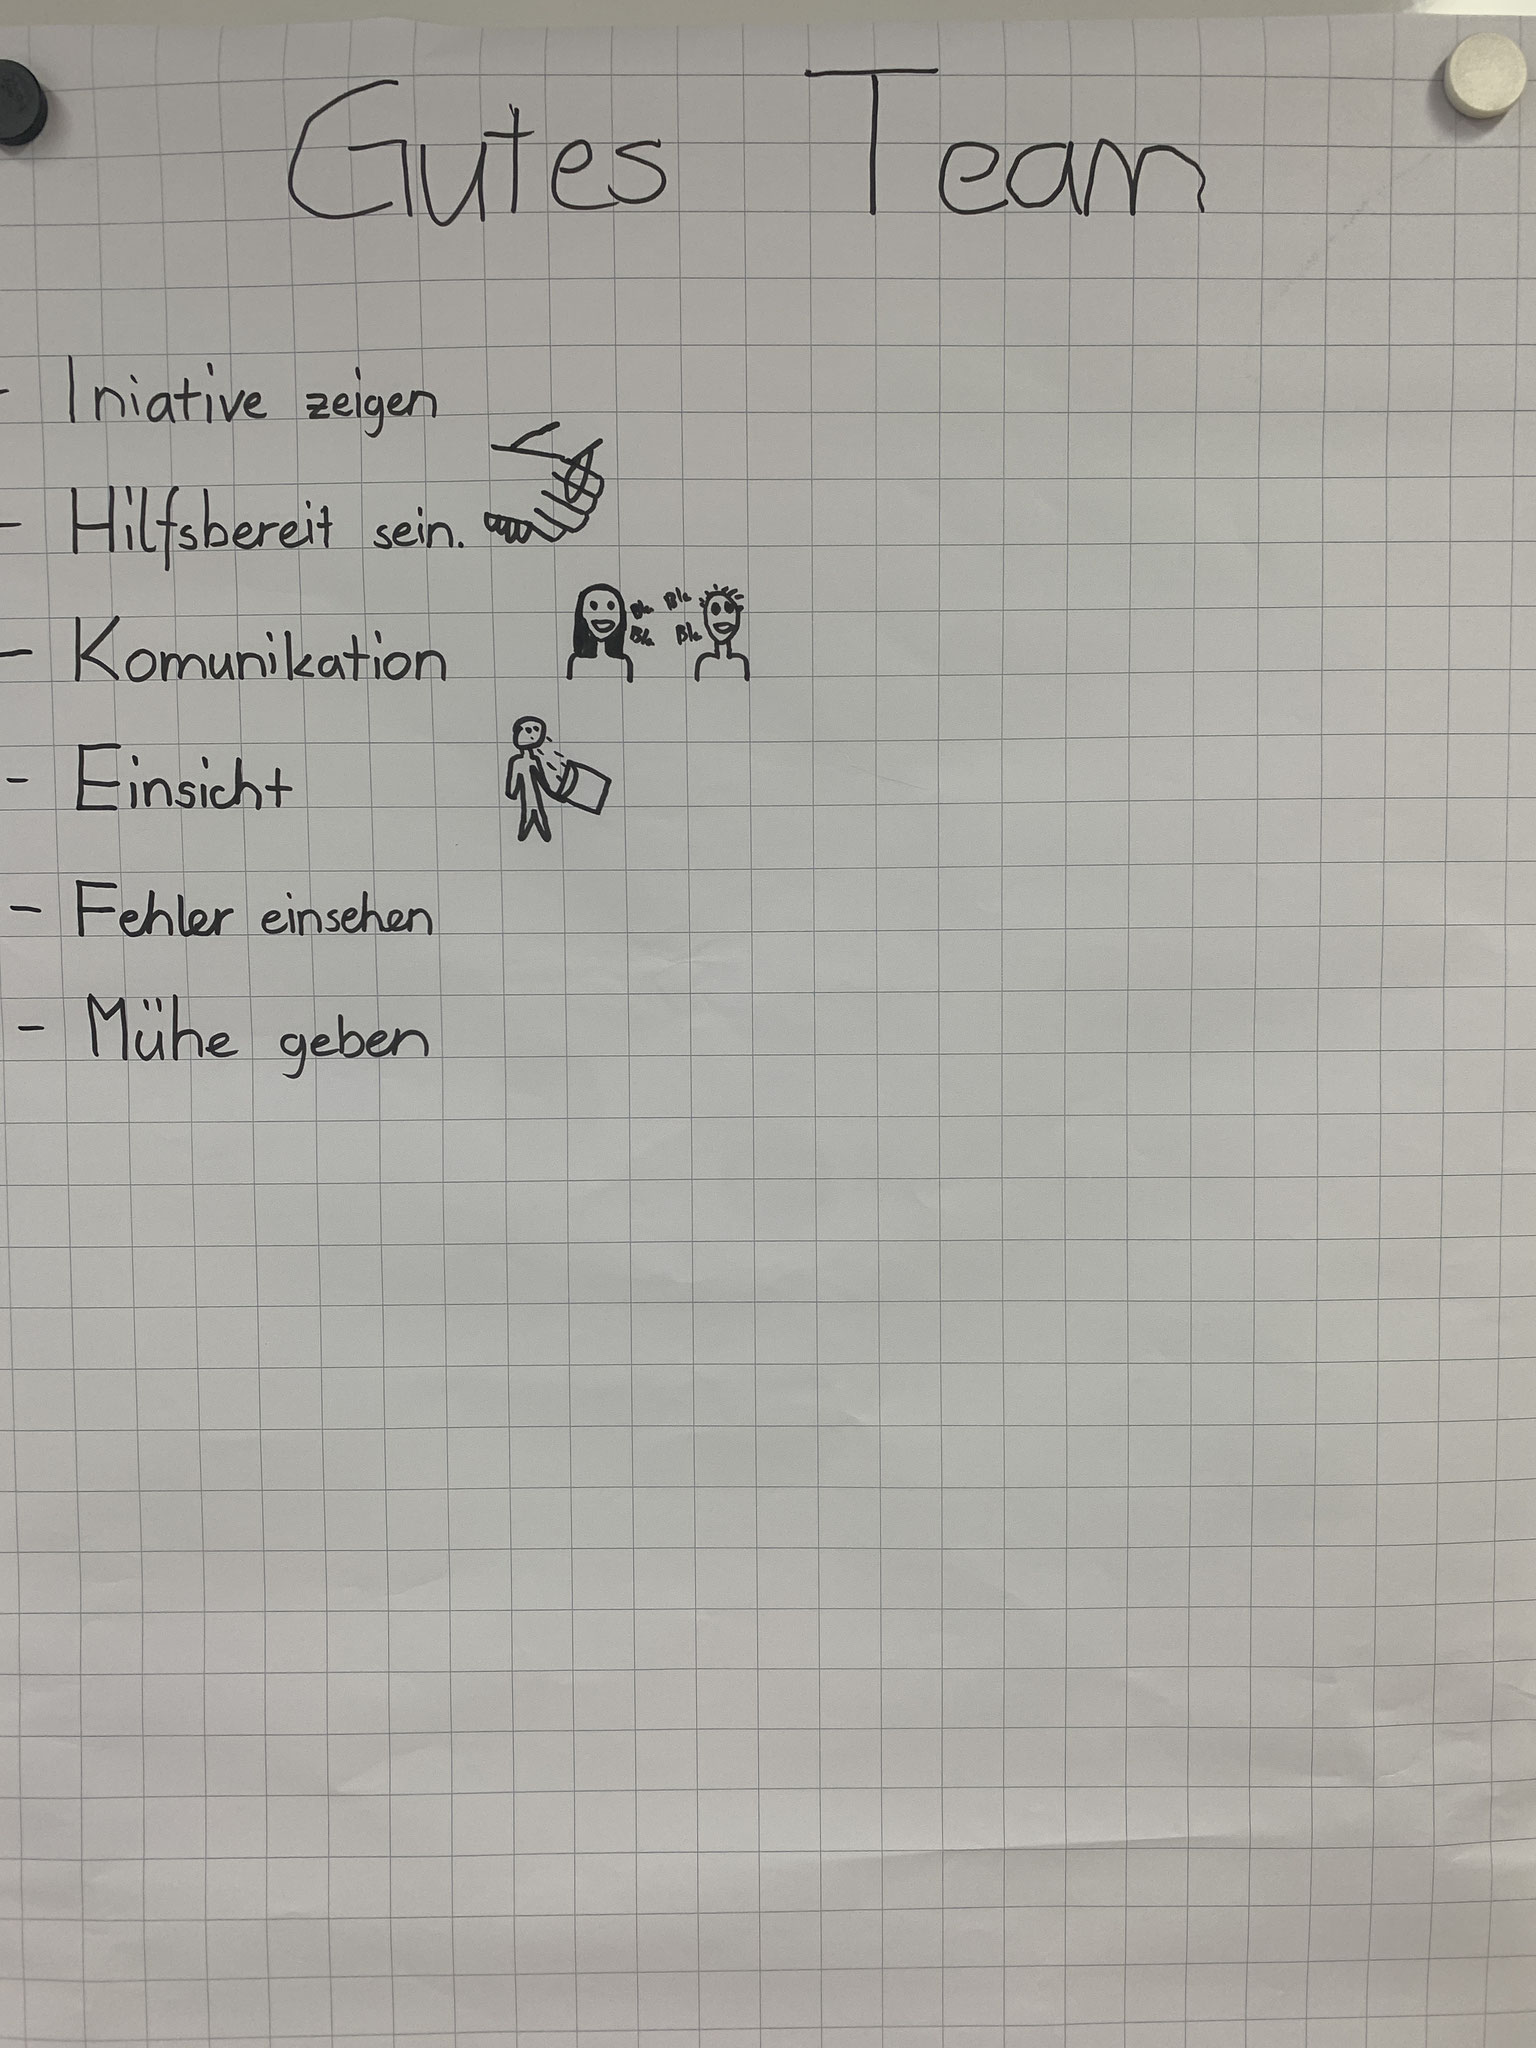 Gutes Team
- Iniative zeigen
- Hilfsbereit sein.
Bla Bla
Bla Bla
- Komunikation
- Einsicht
- Fehler einsehen
- Mühe geben